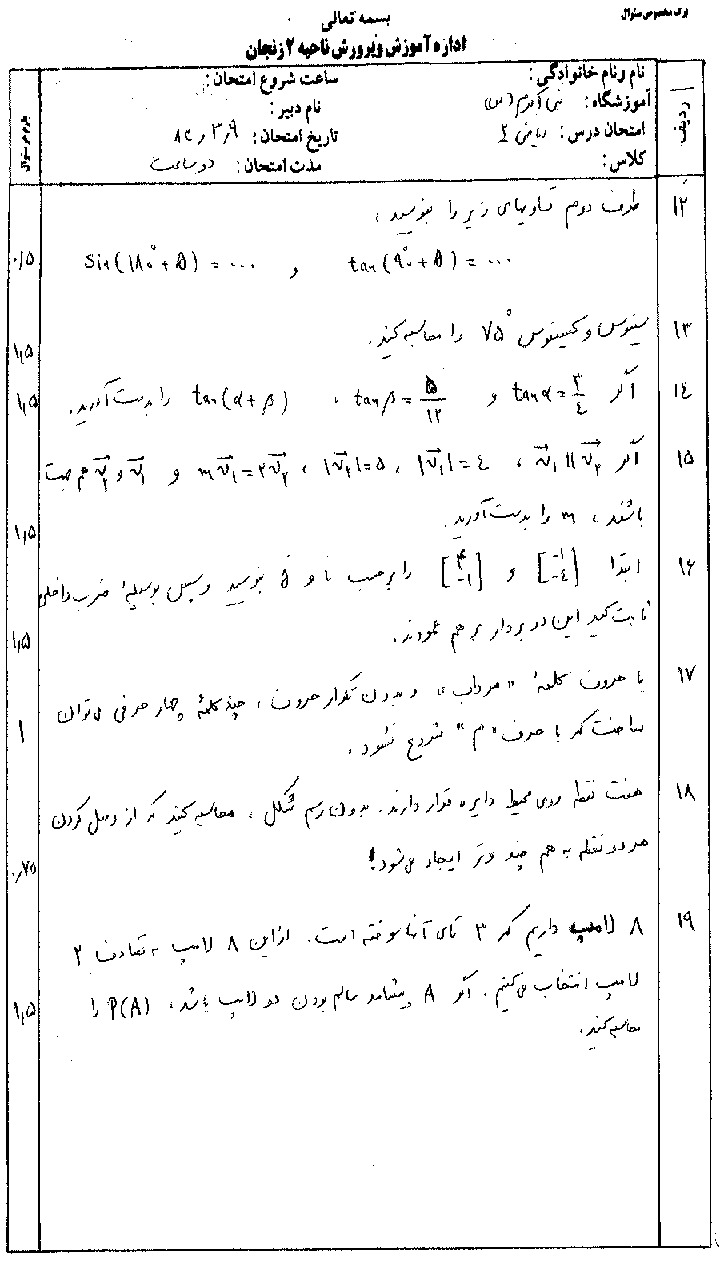 برگ مخصوص سئوال
بسمه تعالی
اداره آموزش و پرورش ناحیه ۲ زنجان
ردیف
نام و نام خانوادگی:
ساعت شروع امتحان:
آموزشگاه: نبی اکرم (ص)
نام دبیر:
امتحان درس: ریاضی ٤
تاریخ امتحان: ۸۲٫۳٫۹
کلاس:
مدت امتحان: دو ساعت
۱۲ طرف دوم تساویهای زیر را بنویسید،
tan(۹۰°+θ)=... و sin(۱۸۰°+θ)=... ۰/۵
۱۳ سینوس و کسینوس ۷۵° را محاسبه کنید. ۱٫۵
۱٤ اگر tanα=۳/٤ و tanβ=۵/۱۲ ، tan(α+β) را بدست آورید. ۱٫۵
۱۵ اگر V₁||V₂ ، |V₁|=٤ ، |V₂|=۵ ، mV₁=۲V₂ و V₁ و V₂ هم جهت
باشند، m را بدست آورید. ۱٫۵
۱۶ ابتدا و را بر حسب i و j بنویسید و سپس بوسیلهٔ ضرب داخلی
ثابت کنید این دو بردار بر هم عمودند. ۱٫۵
۱۷ با حروف کلمهٔ «مرداب» و بدون تکرار حروف، چند کلمهٔ چهار حرفی می توان
ساخت که با حرف «م» شروع شود. ۱
۱۸ هفت نقطه روی محیط دایره قرار دارند. بدون رسم شکل، محاسبه کنید که از وصل کردن
هر دو نقطه به هم چند وتر ایجاد می شود! ۰٫۷۵
۱۹ ۸ لامپ داریم که ۳ تای آنها سوخته است. از این ۸ لامپ به تصادف ۲
لامپ انتخاب می کنیم. اگر A پیشامد سالم بودن دو لامپ باشد، P(A) را
محاسبه کنید. ۱٫۵